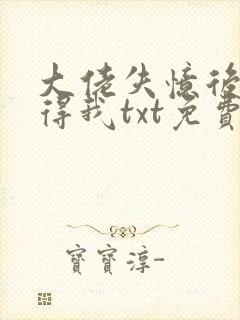 大佬失憶後
得我txt免費
寶寶淳-